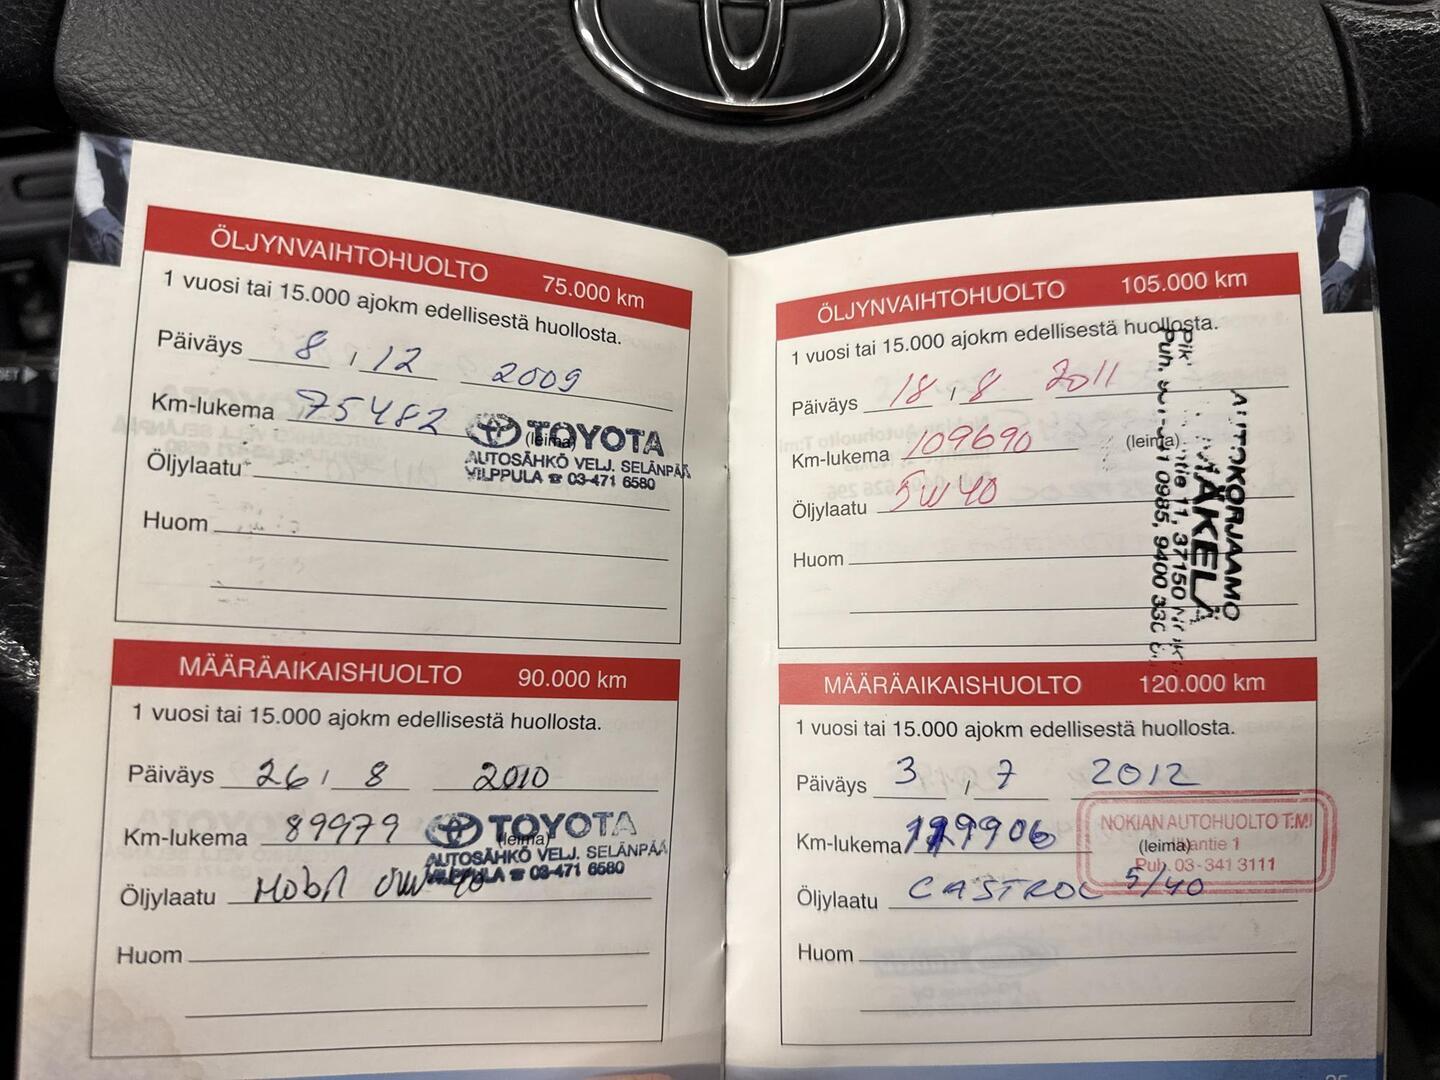 ÖLJYNVAIHTOHUOLTO 75.000 km
1 vuosi tai 15.000 ajokm edellisestä huollosta.
Päiväys 8, 12 2009
Km-lukema 75482
(leima)
TOYOTA
AUTOSÄHKÖ VELJ. SELÄNPÄÄ
VILPPULA ☎ 03-471 6580
Öljylaatu
Huom
MÄÄRÄAIKAISHUOLTO 90.000 km
1 vuosi tai 15.000 ajokm edellisestä huollosta.
Päiväys 26, 8 2010
Km-lukema 89979
(leima)
TOYOTA
AUTOSÄHKÖ VELJ. SELÄNPÄÄ
VILPPULA ☎ 03-471 6580
Öljylaatu Mobil 0W 40
Huom
ÖLJYNVAIHTOHUOLTO 105.000 km
1 vuosi tai 15.000 ajokm edellisestä huollosta.
Päiväys 18, 8 2011
Km-lukema 109690
(leima)
Öljylaatu 5W40
Huom
AUTOKORJAAMO
MÄKELÄ
11, 37150
Puh. 0985, 9400 330
MÄÄRÄAIKAISHUOLTO 120.000 km
1 vuosi tai 15.000 ajokm edellisestä huollosta.
Päiväys 3, 7 2012
Km-lukema 119906
NOKIAN AUTOHUOLTO T:MI
(leima)
Puh. 03-341 3111
Öljylaatu CASTROL 5/40
Huom